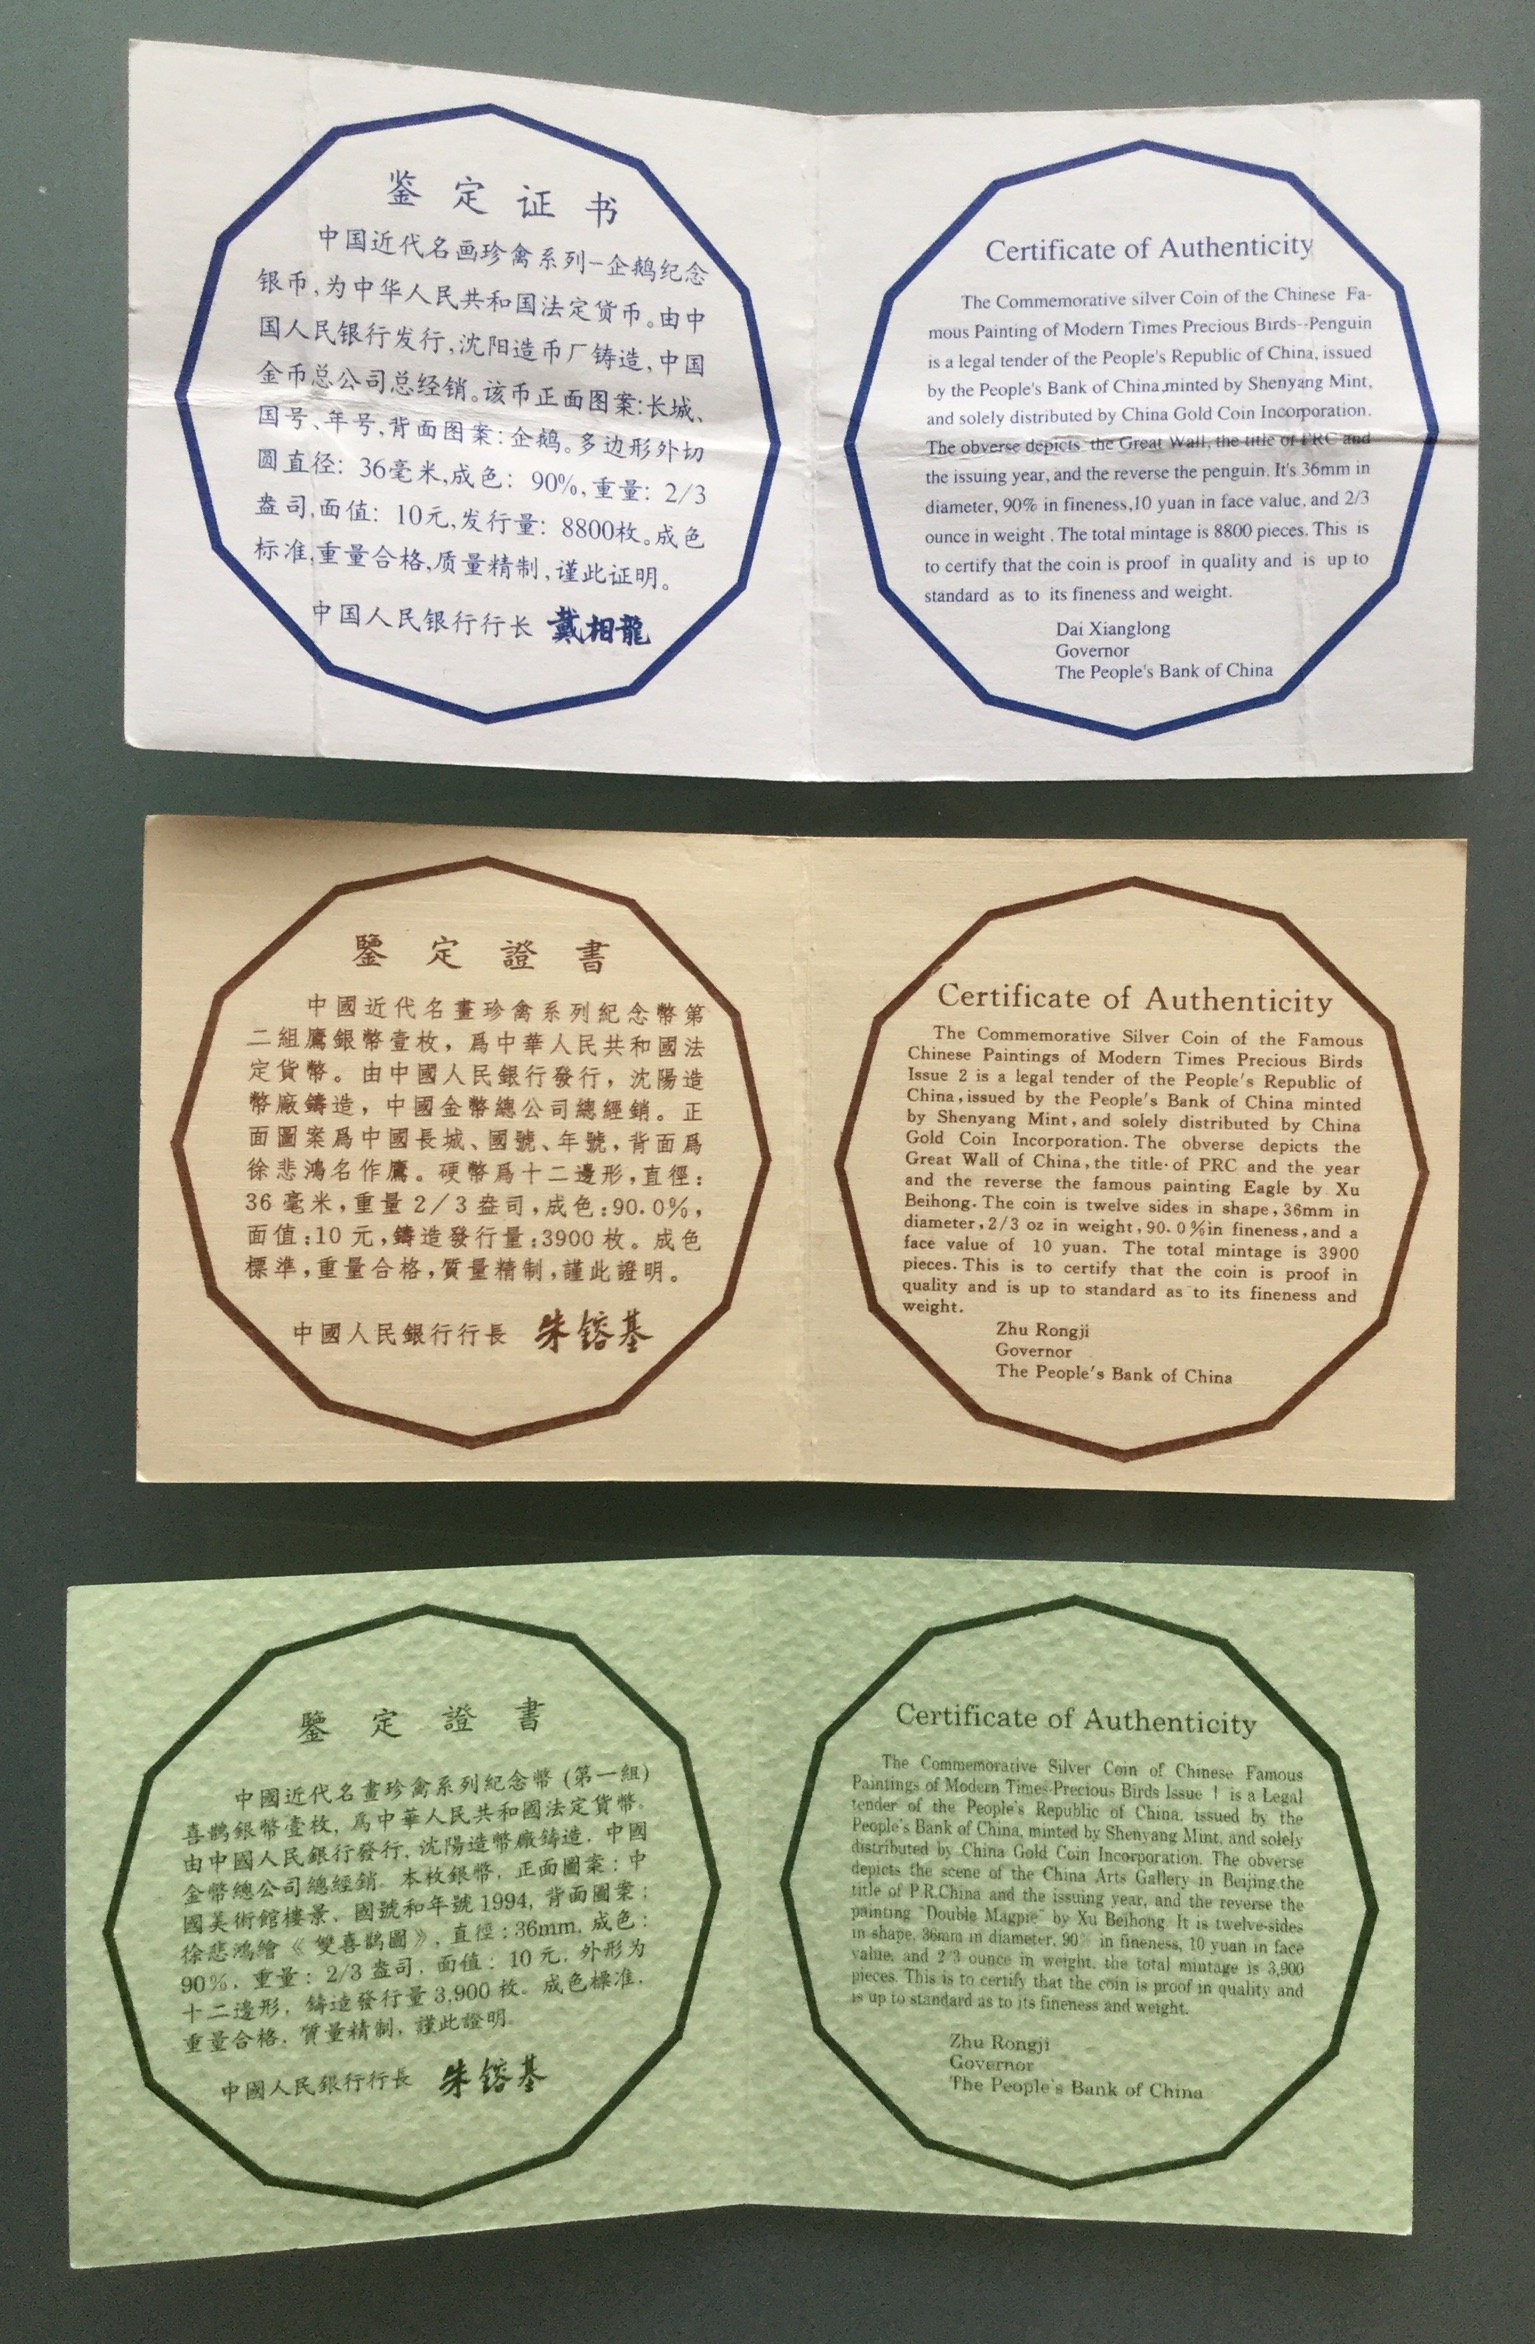 鉴定证书
中国近代名画珍禽系列-企鹅纪念
银币,为中华人民共和国法定货币。由中
国人民银行发行,沈阳造币厂铸造,中国
金币总公司总经销。该币正面图案:长城、
国号、年号,背面图案:企鹅。多边形外切
圆直径: 36毫米,成色: 90%,重量: 2/3
盎司,面值: 10元,发行量: 8800枚。成色
标准,重量合格,质量精制,谨此证明。
中国人民银行行长 戴相龍
Certificate of Authenticity
The Commemorative silver Coin of the Chinese Fa-
mous Painting of Modern Times Precious Birds--Penguin
is a legal tender of the People's Republic of China, issued
by the People's Bank of China,minted by Shenyang Mint,
and solely distributed by China Gold Coin Incorporation.
The obverse depicts the Great Wall, the title of PRC and
the issuing year, and the reverse the penguin. It's 36mm in
diameter, 90% in fineness,10 yuan in face value, and 2/3
ounce in weight . The total mintage is 8800 pieces. This is
to certify that the coin is proof in quality and is up to
standard as to its fineness and weight.
Dai Xianglong
Governor
The People's Bank of China
鑒定證書
中國近代名畫珍禽系列紀念幣第
二組鷹銀幣壹枚，爲中華人民共和國法
定貨幣。由中國人民銀行發行，沈陽造
幣廠鑄造，中國金幣總公司總經銷。正
面圖案爲中國長城、國號、年號，背面爲
徐悲鴻名作鷹。硬幣爲十二邊形，直徑：
36毫米，重量2/3盎司，成色:90.0%，
面值:10元，鑄造發行量:3900枚。成色
標準，重量合格，質量精制，謹此證明。
中國人民銀行行長 朱镕基
Certificate of Authenticity
The Commemorative Silver Coin of the Famous
Chinese Paintings of Modern Times Precious Birds
Issue 2 is a legal tender of the People's Republic of
China,issued by the People's Bank of China minted
by Shenyang Mint,and solely distributed by China
Gold Coin Incorporation. The obverse depicts the
Great Wall of China,the title of PRC and the year
and the reverse the famous painting Eagle by Xu
Beihong. The coin is twelve sides in shape,36mm in
diameter,2/3 oz in weight,90.0%in fineness,and a
face value of 10 yuan. The total mintage is 3900
pieces. This is to certify that the coin is proof in
quality and is up to standard as to its fineness and
weight.
Zhu Rongji
Governor
The People's Bank of China
鑒定證書
中國近代名畫珍禽系列紀念幣(第一組)
喜鵲銀幣壹枚，爲中華人民共和國法定貨幣。
由中國人民銀行發行，沈陽造幣廠鑄造，中國
金幣總公司總經銷。本枚銀幣，正面圖案：中
國美術館樓景、國號和年號1994，背面圖案：
徐悲鴻繪《雙喜鵲圖》，直徑：36mm，成色：
90%，重量：2/3盎司，面值：10元，外形为
十二邊形，鑄造發行量3,900枚。成色標准，
重量合格，質量精制，謹此證明。
中國人民銀行行長 朱镕基
Certificate of Authenticity
The Commemorative Silver Coin of Chinese Famous
Paintings of Modern Times-Precious Birds Issue 1 is a Legal
tender of the People's Republic of China, issued by the
People's Bank of China, minted by Shenyang Mint, and solely
distributed by China Gold Coin Incorporation. The obverse
depicts the scene of the China Arts Gallery in Beijing.the
title of P.R.China and the issuing year, and the reverse the
painting "Double Magpie" by Xu Beihong. It is twelve-sides
in shape, 36mm in diameter, 90% in fineness, 10 yuan in face
value, and 2/3 ounce in weight, the total mintage is 3,900
pieces. This is to certify that the coin is proof in quality and
is up to standard as to its fineness and weight.
Zhu Rongji
Governor
The People's Bank of China